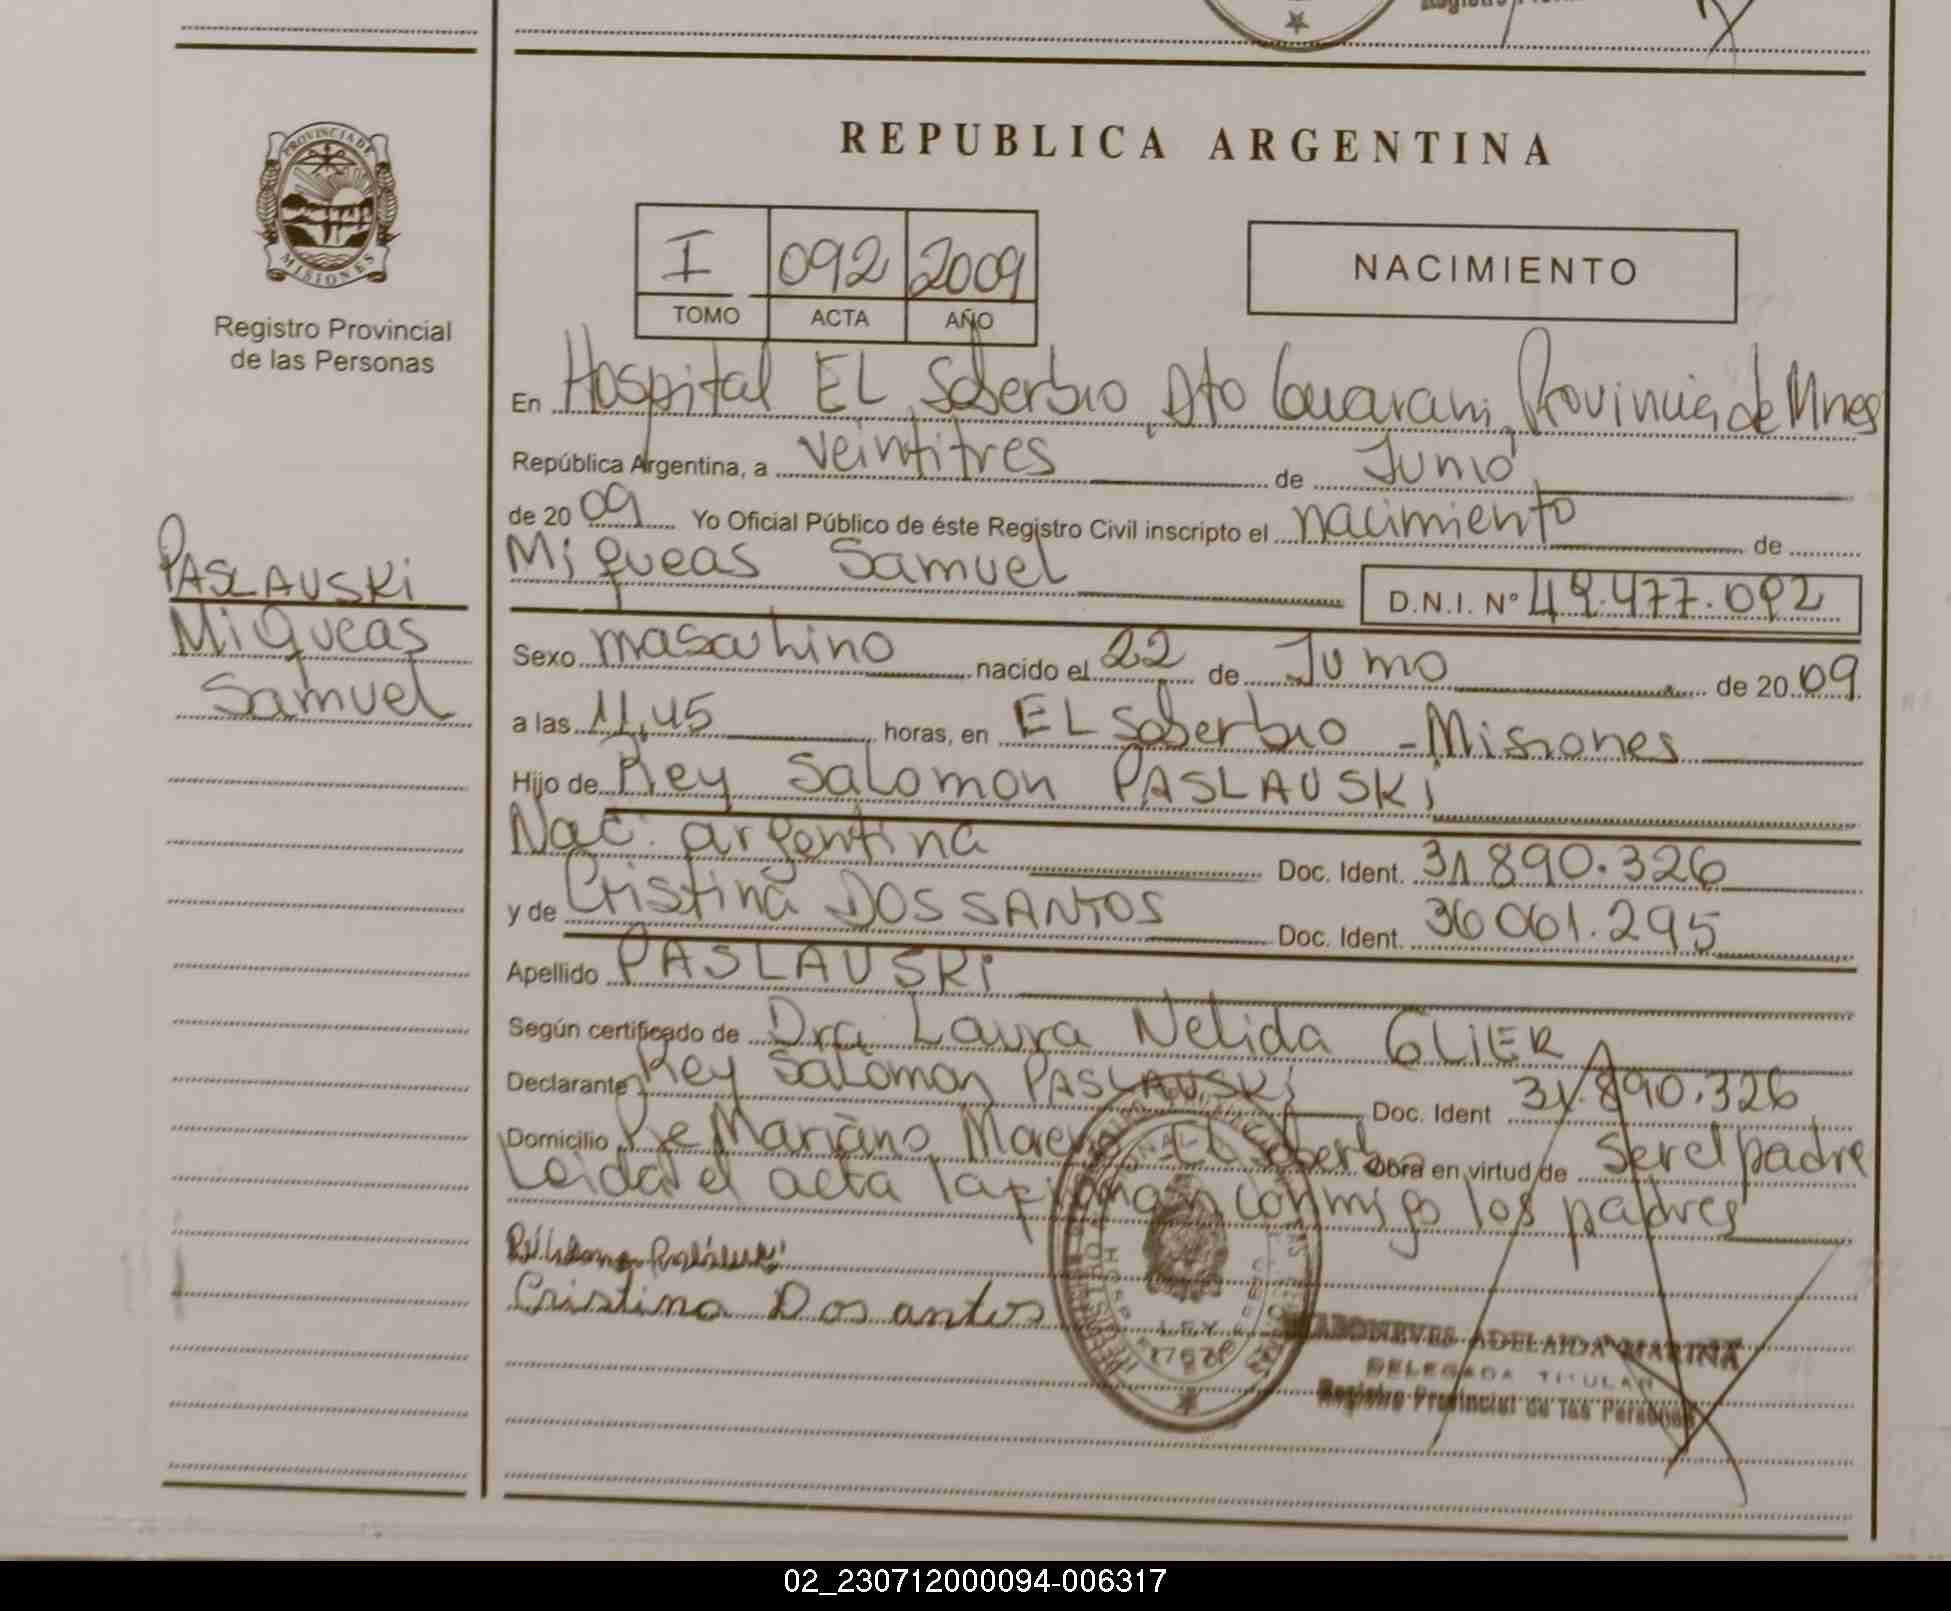 REPUBLICA ARGENTINA
PROVINCIA DE MISIONES
Registro Provincial
de las Personas
I 092 2009
TOMO ACTA AÑO
NACIMIENTO
En Hospital EL Soberbio, Dto Guarani, Provincia de Mnes
República Argentina, a veintitres de Junio
de 20 09 Yo Oficial Público de éste Registro Civil inscripto el nacimiento de
Miqueas Samuel D.N.I. Nº 49.477.092
PASLAUSKi
Miqueas
Samuel
Sexo masculino nacido el 22 de Junio de 20 09
a las 11,45 horas, en EL Soberbio - Misiones
Hijo de Rey Salomon PASLAUSKi
Nac. argentina Doc. Ident. 31.890.326
y de Cristina DOS SANTOS Doc. Ident. 36061.295
Apellido PASLAUSKi
Según certificado de Dra Laura Nelida GLIER
Declarante Rey Salomon PASLAUSKi Doc. Ident 31.890.326
Domicilio Pje Mariano Moreno El Soberbio Obra en virtud de ser el padre
Leida el acta la firman conmigo los padres
Cristina Dos antos
ADELAIDA MARINA
DELEGADA TITULAR
Registro Provincial de las Personas
02_230712000094-006317